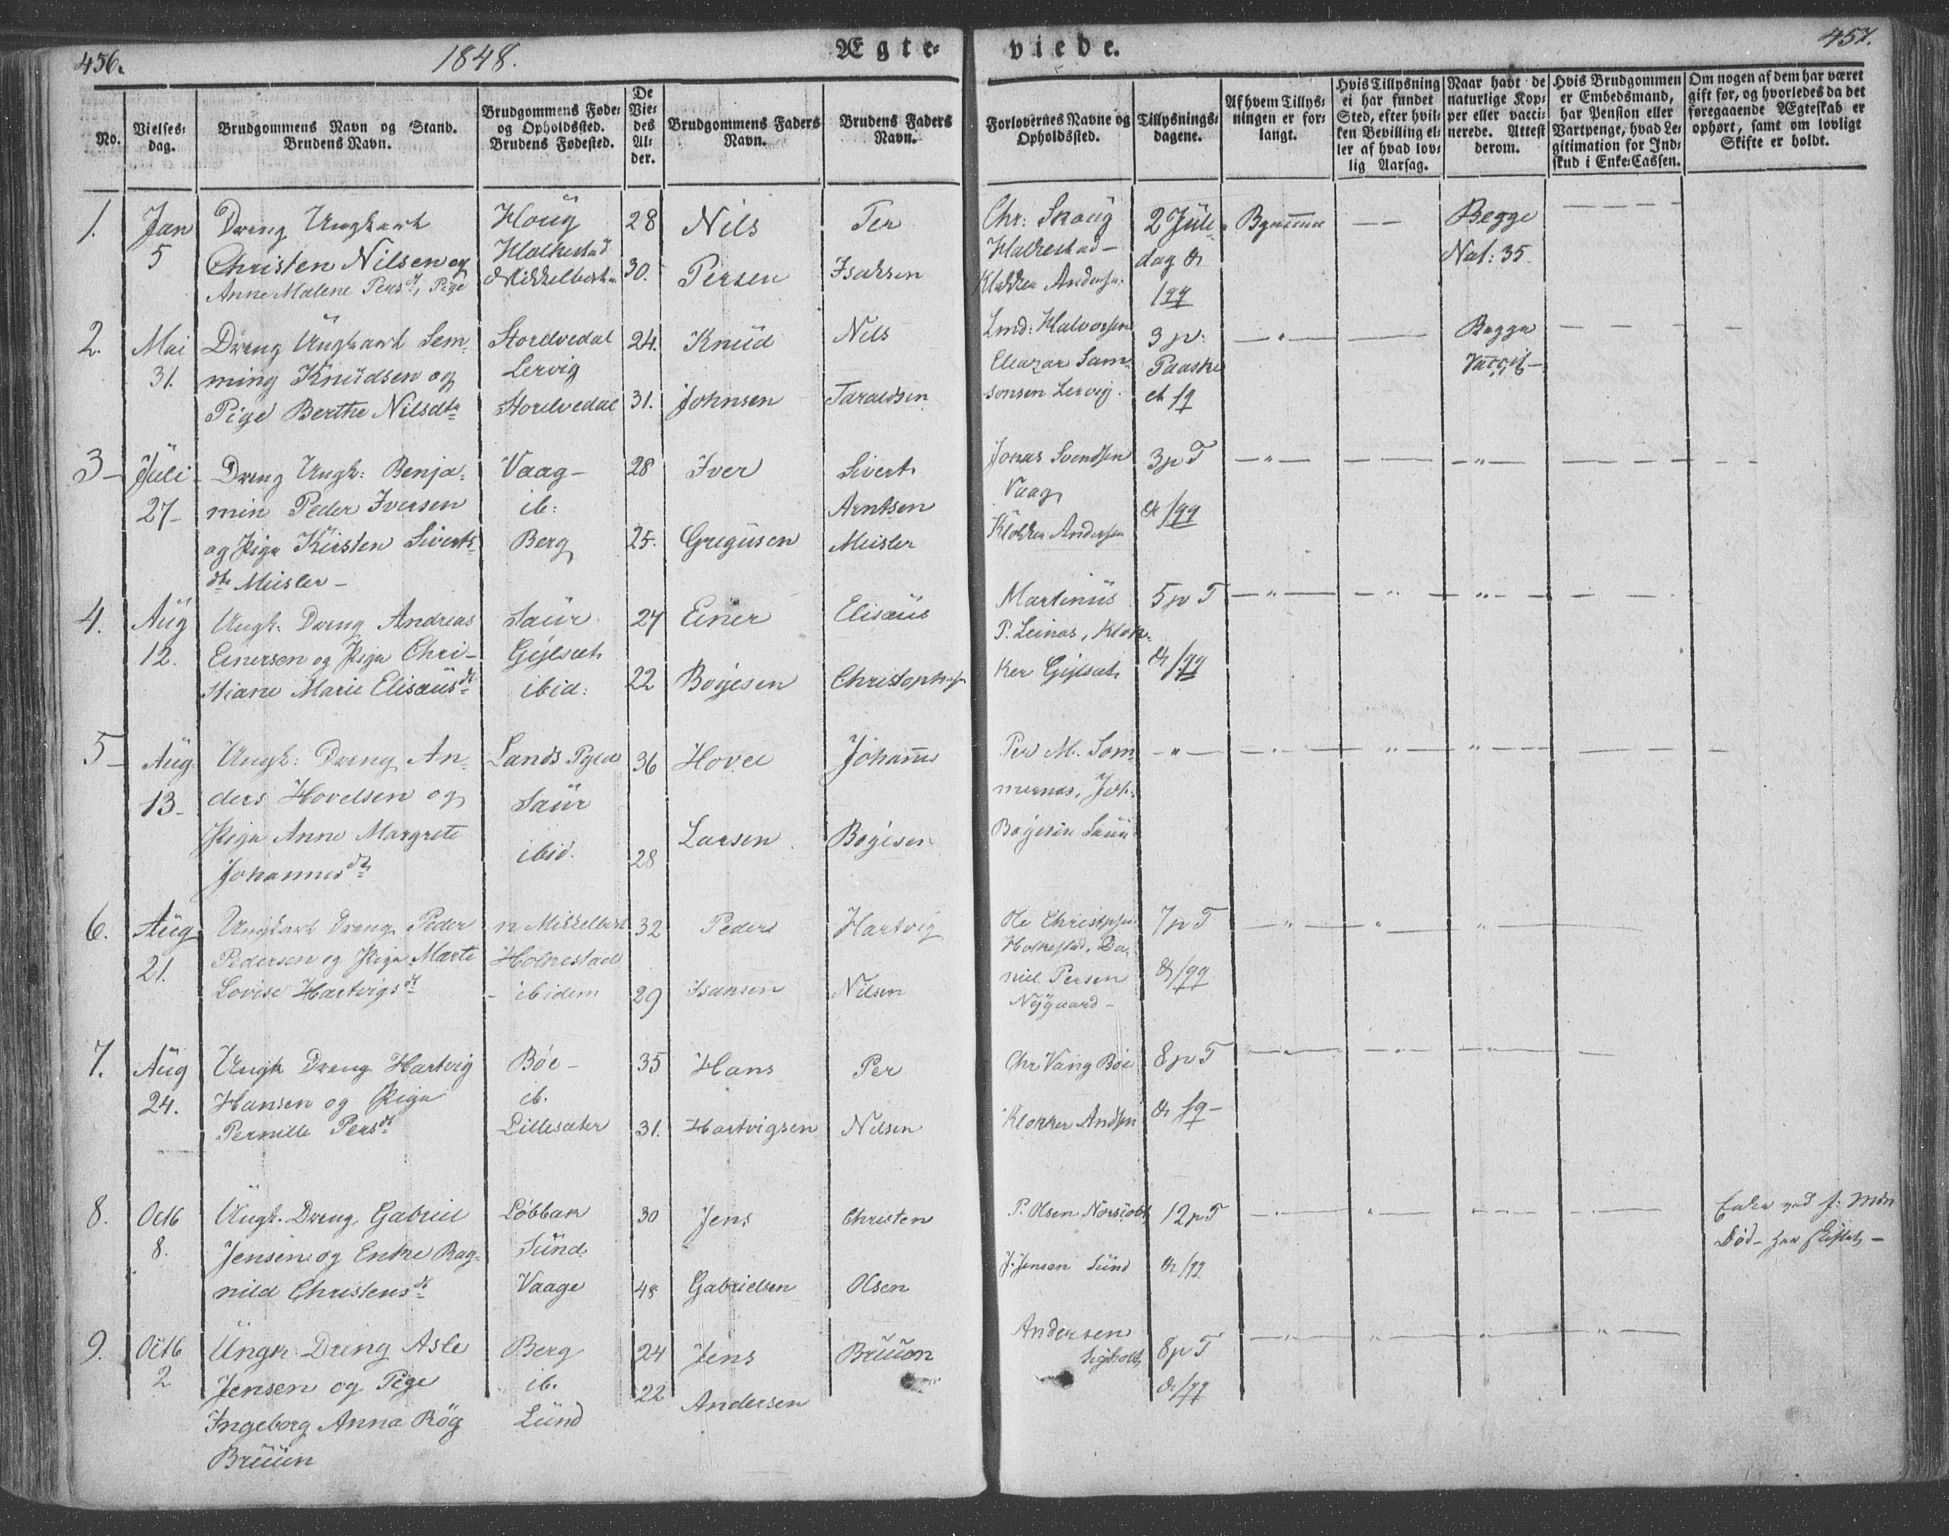 456.
1848.
Ægte-
viede.
457.
No.
Vielses-
dag.
Brudgommens Navn og Stand.
Brudens Navn.
Brudgommens Føde-
og Opholdssted.
Brudens Fødested.
De
Vie-
des
Al-
der.
Brudgommens Faders
Navn.
Brudens Faders
Navn.
Forlovernes Navne og
Opholdssted.
Tillysnings-
dagene.
Af hvem Tillys-
ningen er for-
langt.
Hvis Tillysning
ei har fundet
Sted, efter hvil-
ken Bevilling el-
ler af hvad lov-
lig Aarsag.
Naar havt de
naturlige Kop-
per eller vacci-
nerede. Attest
derom.
Hvis Brudgommen
er Embedsmand,
har Pension eller
Vartpenge, hvad Le-
gitimation for Ind-
skud i Enke-Cassen.
Om nogen af dem har været
gift før, og hvorledes da det
foregaaende Ægteskab er
ophørt, samt om lovligt
Skifte er holdt.
1.
Jan
5
Dreng Ungkarl
Christen Nilsen og
Anne Malene Persdt, Pige
Houg
Holkestad
Mikkelbost
28
30.
Nils
Persen
Per
Isaksen
Chr: Skoug
Holkestad –
Klokker Andersen
2 Jule
dag &
1 99
Begge
Nat: 35.
2.
Mai
31.
Dreng Ungkarl Sem-
ming Knudsen og
Pige Berthe Nilsdtr
Storelvedal
Lervig
Storelvedal
24.
31.
Knud
Johnsen
Nils
Taraldsen
Lmd: Halvorsen
Eleazar Sam-
sonsen Lervig.
3 p:
Paaske
et f9
Begge
Vaccit –
3 –
Juli
27 –
Dreng Ungk: Benja-
min Peder Iversen
og Pige Kirsten Siverts-
dtr Meisler –
Vaag –
ib:
Berg
28
25.
Iver
Gregusen
Sivert
Arntsen
Meisler
Jonas Svendsen
Vaag
Klokker Andersen
3 p T
& f99
4.
Aug
12.
Ungk: Dreng Andreas
Einersen og Pige Chri-
stiane Marie Elisæusdt
Saur
Gylset
ibid:
27
22
Einer
Bøyesen
Elisæus
Christophersen
Martinus
P. Leines, Klok-
ker Gylset
5 p T
& f99
5 –
Aug
13 –
Ungk: Dreng An-
ders Hovelsen og
Pige Anne Margrete
Johannesdt
Saur
ibid.
36
28
Hovel
Larsen
Johannes
Bøyesen
Per M. Som-
mernes, Joh:
Bøyesen Saur
6.
Aug
21.
Ungkarl Dreng Peder
Pedersen og Pige Marte
Lovise Hartvigsdt
n. Mikkelbost
Holkestad
– ibidem
32
29
Peder
Isaksen
Hartvig
Nilsen
Ole Christophers
Holkestad, Da-
niel Persen
Nygaard –
7 p T
& f99
7.
Aug
24.
Ungk Dreng Hartvig
Hansen og Pige
Pernille Persdt
Bøe –
ib.
Lillesæter
35
31.
Hans
Hartvigsen
Per
Nilsen
Chr Vang Bøe
Klokker Andsen
8 p T
& f9 –
8.
Octb
8.
Ungk. Dreng Gabriel
Jensen og Enke Rag-
nild Christensdt
Løbbak
Sund
Vaage
30
48
Jens
Gabrielsen
Christen
Olsen
J. Jensen Sund
12 p T
& f99
Enke ved f: Mds
Død – har skiftet –
9.
Octb
2
Ungk: Dreng Asle
Jensen og Pige
Ingeborg Anna Røg
Bruun
Berg
ib.
Lund
24
22
Jens
Andersen
Bruun
Andersen
8 p T
& f99